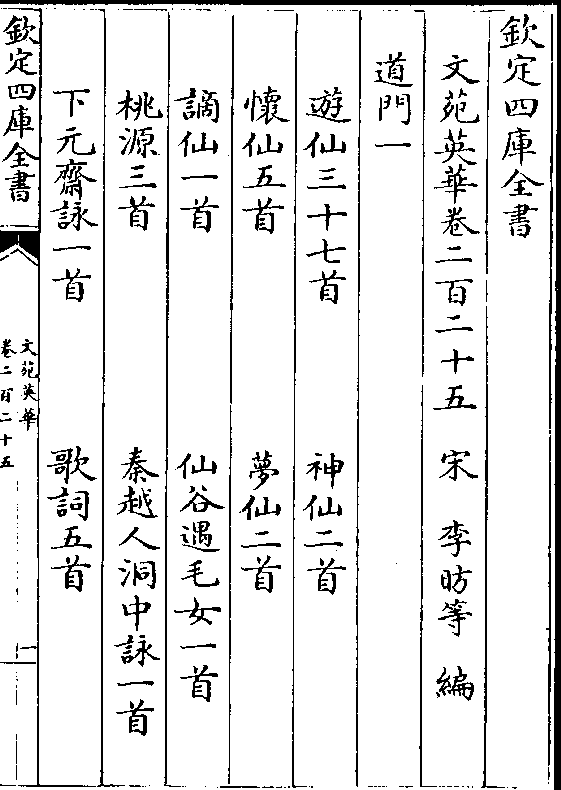 欽定四庫全書
文苑英華卷二百二十五 宋 李昉等 編
道門一
遊仙三十七首 神仙二首
懷仙五首 夢仙二首
謫仙一首 仙谷遇毛女一首
桃源三首 秦越人洞中詠一首
下元齋詠一首 歌詞五首
欽定四庫全書
文苑英華
卷二百二十五
一